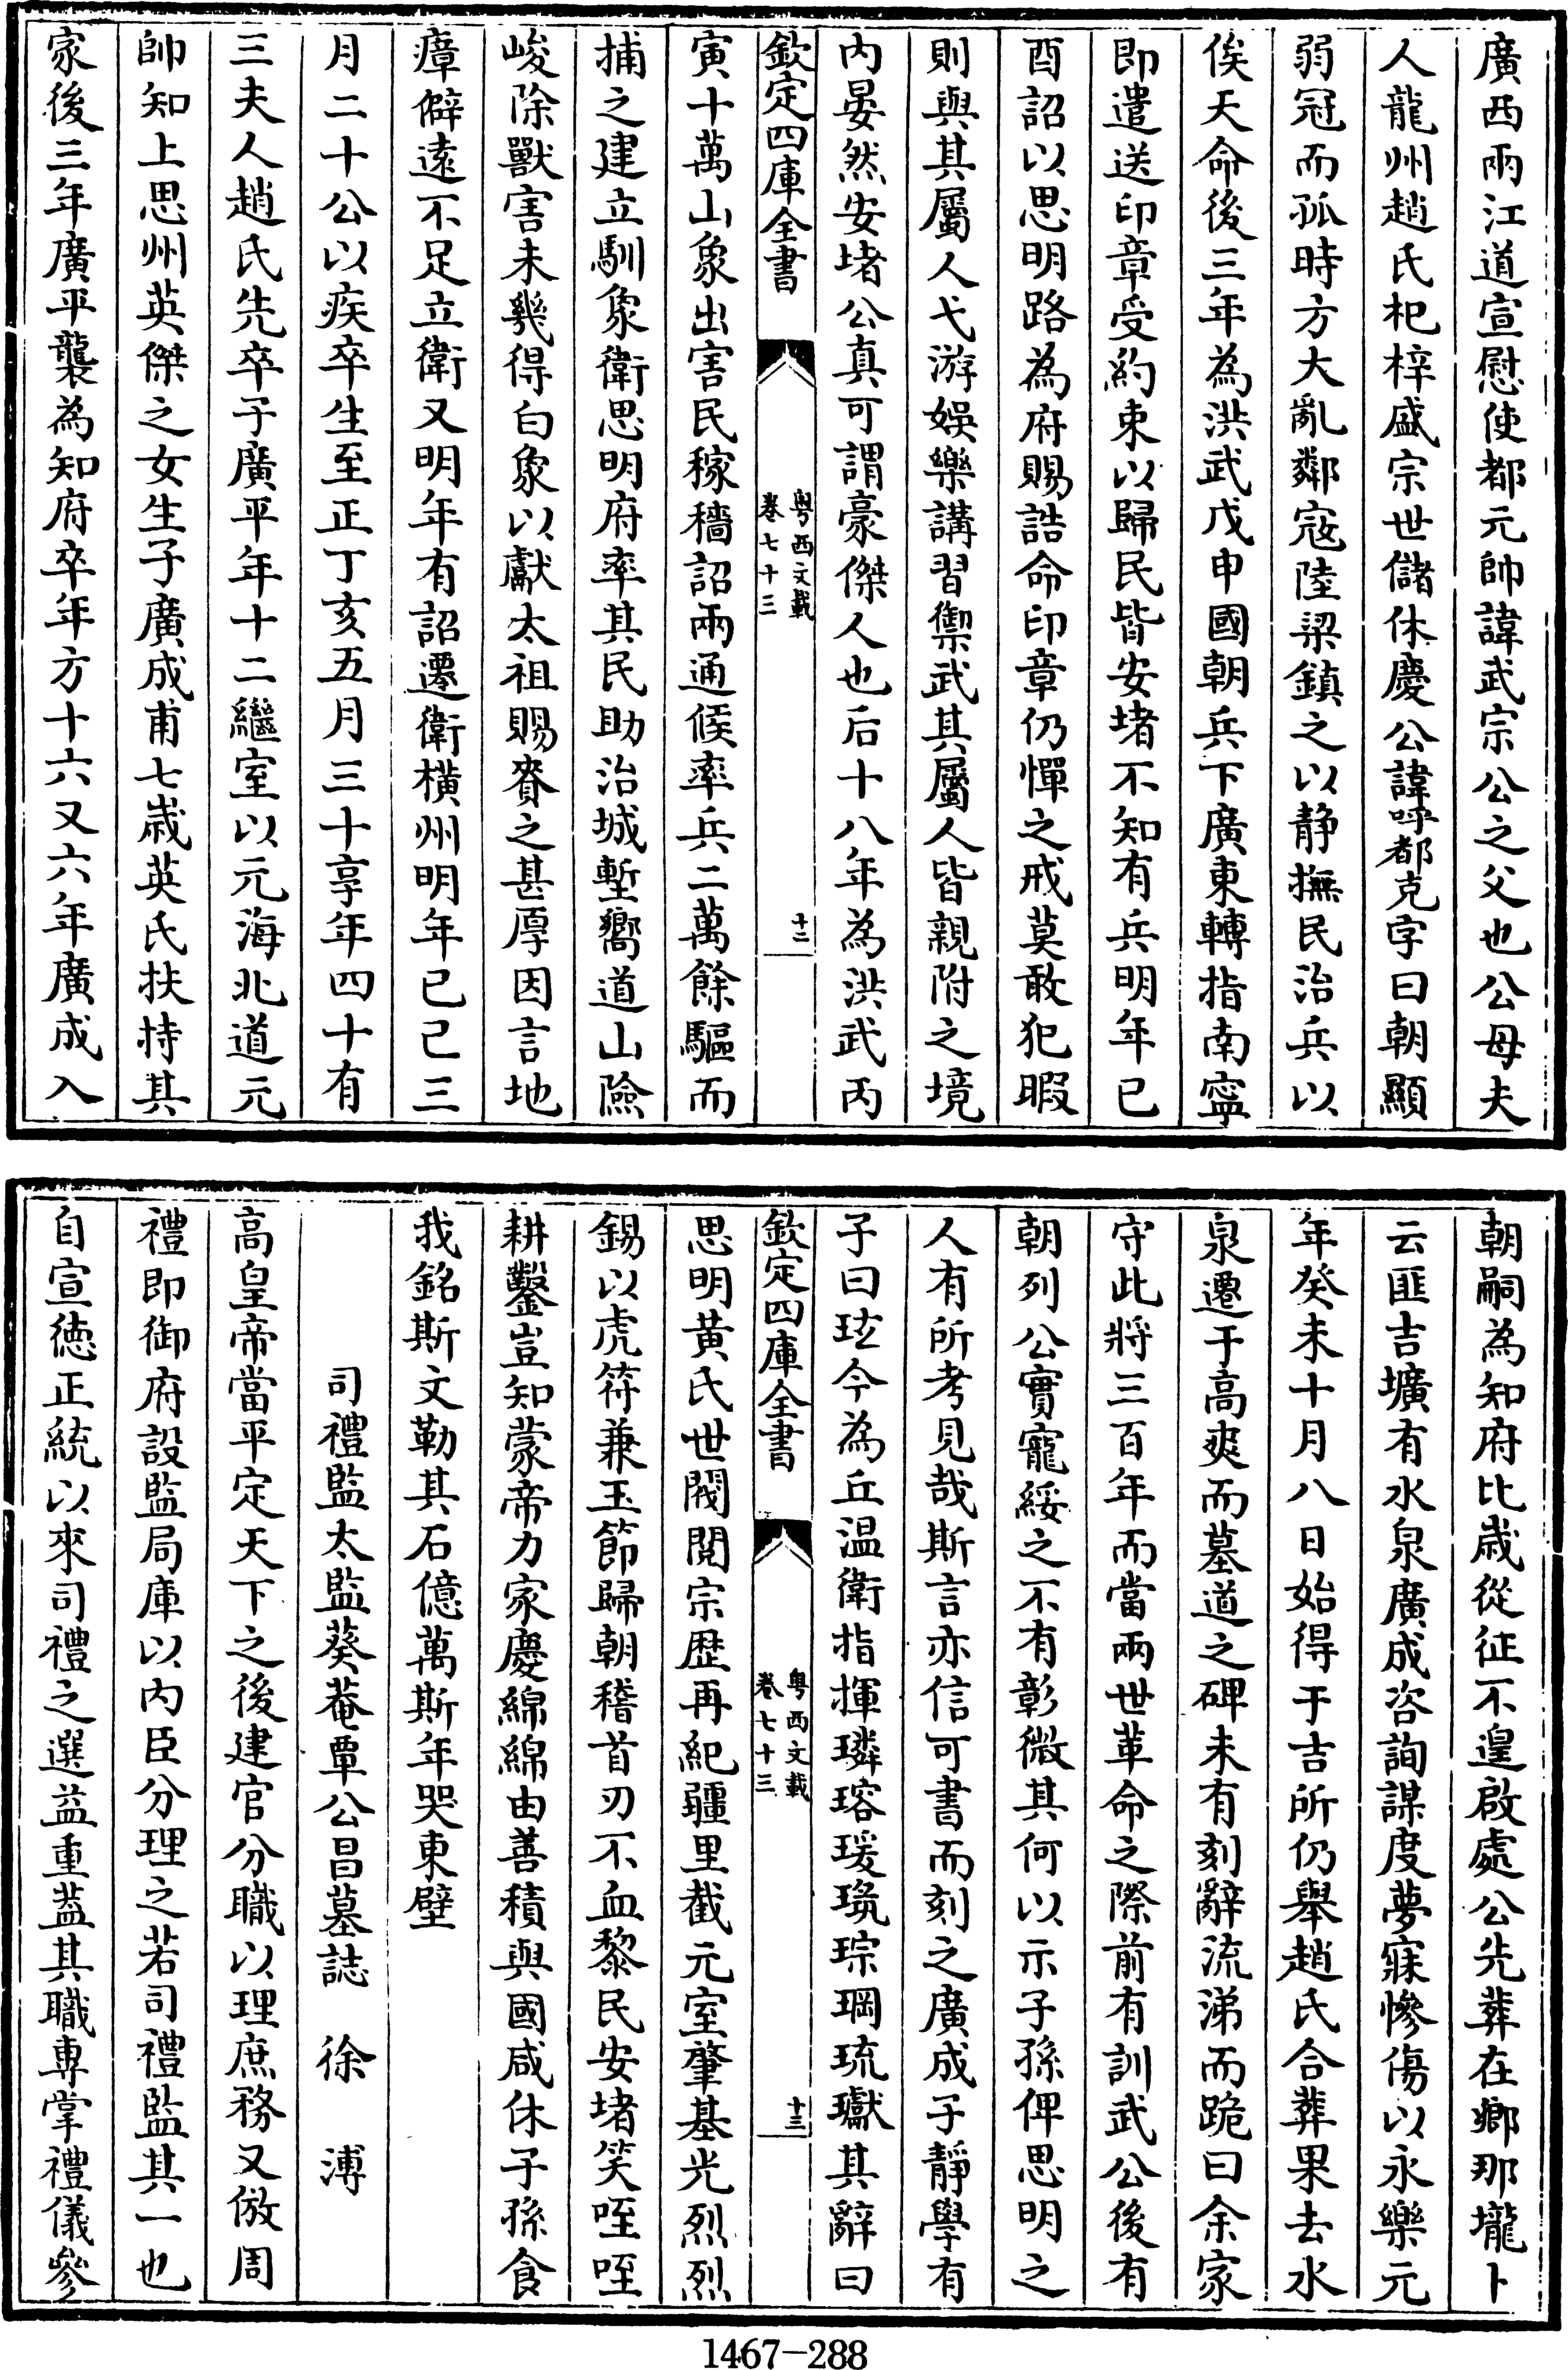 廣西兩江道宣慰使都元帥諱武宗公之父也公母夫
人龍州趙氏杞梓盛宗世儲休慶公諱呼都克字曰朝顯
弱冠而孤時方大亂鄰寇陸梁鎮之以静撫民治兵以
俟天命後三年為洪武戊申國朝兵下廣東轉指南寧
即遣送印章受約束以歸民皆安堵不知有兵明年已
酉詔以思明路為府賜誥命印章仍憚之戒莫敢犯暇
則與其屬人弋游娛樂講習禦武其屬人皆親附之境
内晏然安堵公真可謂豪傑人也后十八年為洪武丙
欽定四庫全書
粤西文載
卷七十三
十二
寅十萬山象出害民稼穡詔兩通候率兵二萬餘驅而
捕之建立馴象衛思明府率其民助治城塹嚮道山險
峻除獸害未幾得白象以獻太祖賜賚之甚厚因言地
瘴僻遠不足立衛又明年有詔遷衛橫州明年已己三
月二十公以疾卒生至正丁亥五月三十享年四十有
三夫人趙氏先卒子廣平年十二繼室以元海北道元
帥知上思州英傑之女生子廣成甫七歲英氏扶持其
家後三年廣平襲為知府卒年方十六又六年廣成入
朝嗣為知府比歲從征不遑啟處公先葬在鄉那壠卜
云匪吉壙有水泉廣成咨詢謀度夢寐慘傷以永樂元
年癸未十月八日始得于吉所仍舉趙氏合葬果去水
泉遷于高爽而墓道之碑未有刻辭流涕而跪曰余家
守此將三百年而當兩世革命之際前有訓武公後有
朝列公實寵綏之不有彰微其何以示子孫俾思明之
人有所考見哉斯言亦信可書而刻之廣成子靜學有
子曰玹今為丘温衛指揮璘瑢瑗㻾琮琱琉瓛其辭曰
欽定四庫全書
粤西文載
卷七十三
十三
思明黄氏世閥閱宗歴再紀疆里截元室肇基光烈烈
錫以虎符兼玉節歸朝稽首刃不血黎民安堵笑咥咥
耕鑿豈知蒙帝力家慶綿綿由善積與國咸休子孫食
我銘斯文勒其石億萬斯年哭東壁
司禮監太監葵菴覃公昌墓誌 徐 溥
高皇帝當平定天下之後建官分職以理庶務又倣周
禮即御府設監局庫以内臣分理之若司禮監其一也
自宣徳正統以來司禮之選益重葢其職專掌禮儀參
1467-288